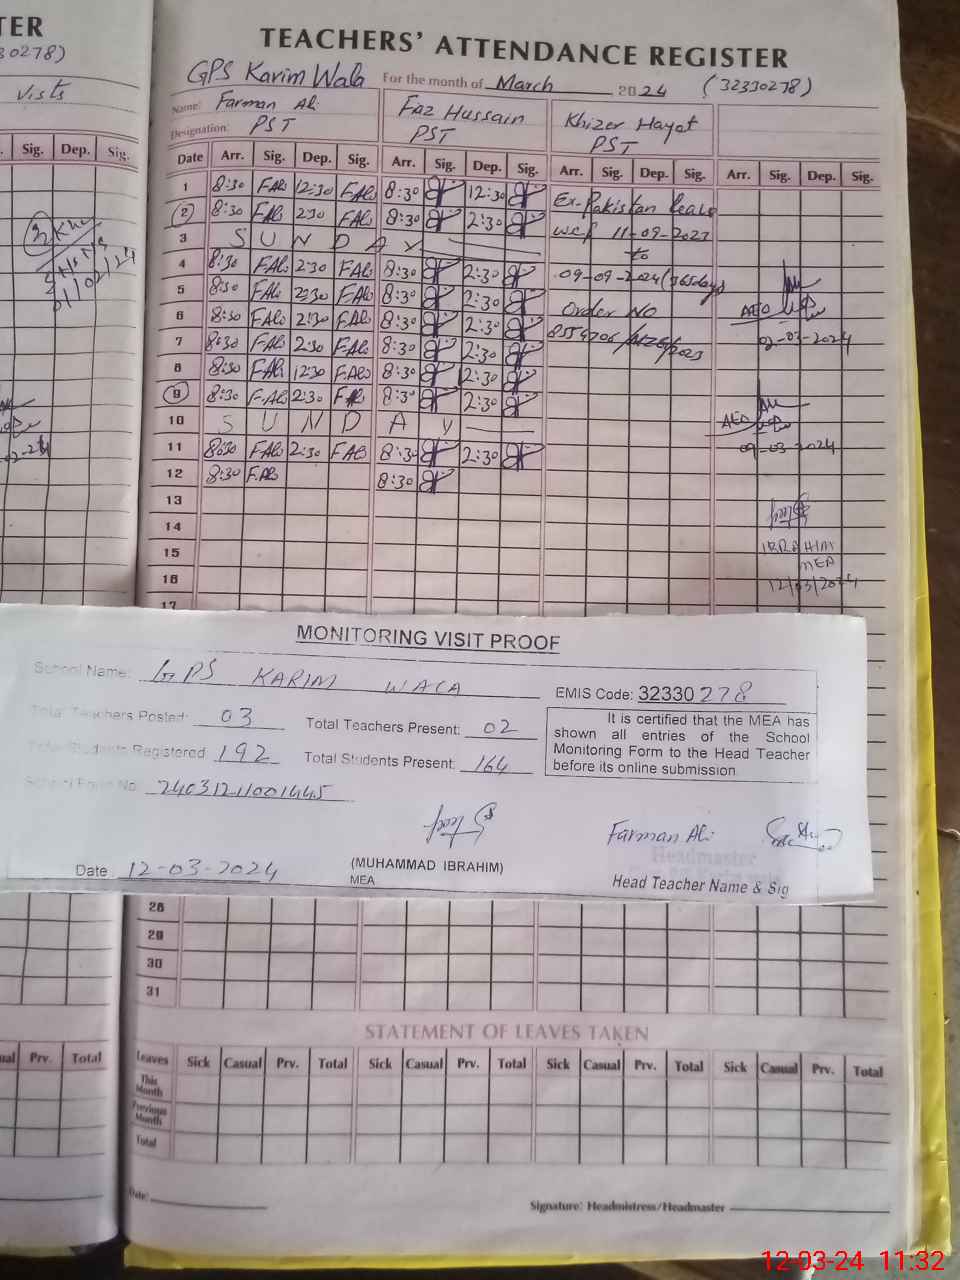 TER
30278)
Vists
Sig. Dep. Sig.
01/02/24
TEACHERS' ATTENDANCE REGISTER
GPS Karim Wala For the month of March 2024 (32330278)
Name: Farman Ali Faz Hussain Khizer Hayat
Designation: PST PST PST
Date Arr. Sig. Dep. Sig. Arr. Sig. Dep. Sig. Arr. Sig. Dep. Sig. Arr. Sig. Dep. Sig.
1 8:30 F.Ali 12:30 F.Ali 8:30 12:30 Ex-Pakistan leave
2 8:30 F.Ali 2:30 F.Ali 8:30 2:30 w.e.f 11-09-2023
3 S U N D A Y to
4 8:30 F.Ali 2:30 F.Ali 8:30 2:30 09-09-2024 (365days)
5 8:30 F.Ali 2:30 F.Ali 8:30 2:30 Order NO AEO
6 8:30 F.Ali 2:30 F.Ali 8:30 2:30 02-03-2024
7 8:30 F.Ali 2:30 F.Ali 8:30 2:30
8 8:30 F.Ali 12:30 F.Ali 8:30 2:30
9 8:30 F.Ali 2:30 F.Ali 8:30 2:30
10 S U N D A Y AEO
11 8:30 F.Ali 2:30 F.Ali 8:30 2:30 09-03-2024
12 8:30 F.Ali 8:30
13
14
15 IBRAHIM
MEA
16 12/03/2024
17
MONITORING VISIT PROOF
School Name: GPS KARIM WALA EMIS Code: 32330278
Total Teachers Posted: 03 Total Teachers Present: 02
Total Students Registered 192 Total Students Present: 164
It is certified that the MEA has
shown all entries of the School
Monitoring Form to the Head Teacher
before its online submission.
School Form No: 24031211001445
Farman Ali
Headmaster
Date 12-03-2024 (MUHAMMAD IBRAHIM)
MEA
Head Teacher Name & Sig
28
29
30
31
STATEMENT OF LEAVES TAKEN
ual Prv. Total
Leaves Sick Casual Prv. Total Sick Casual Prv. Total Sick Casual Prv. Total Sick Casual Prv. Total
This Month
Previous Month
Total
Date:
Signature: Headmistress/Headmaster
12-03-24 11:32